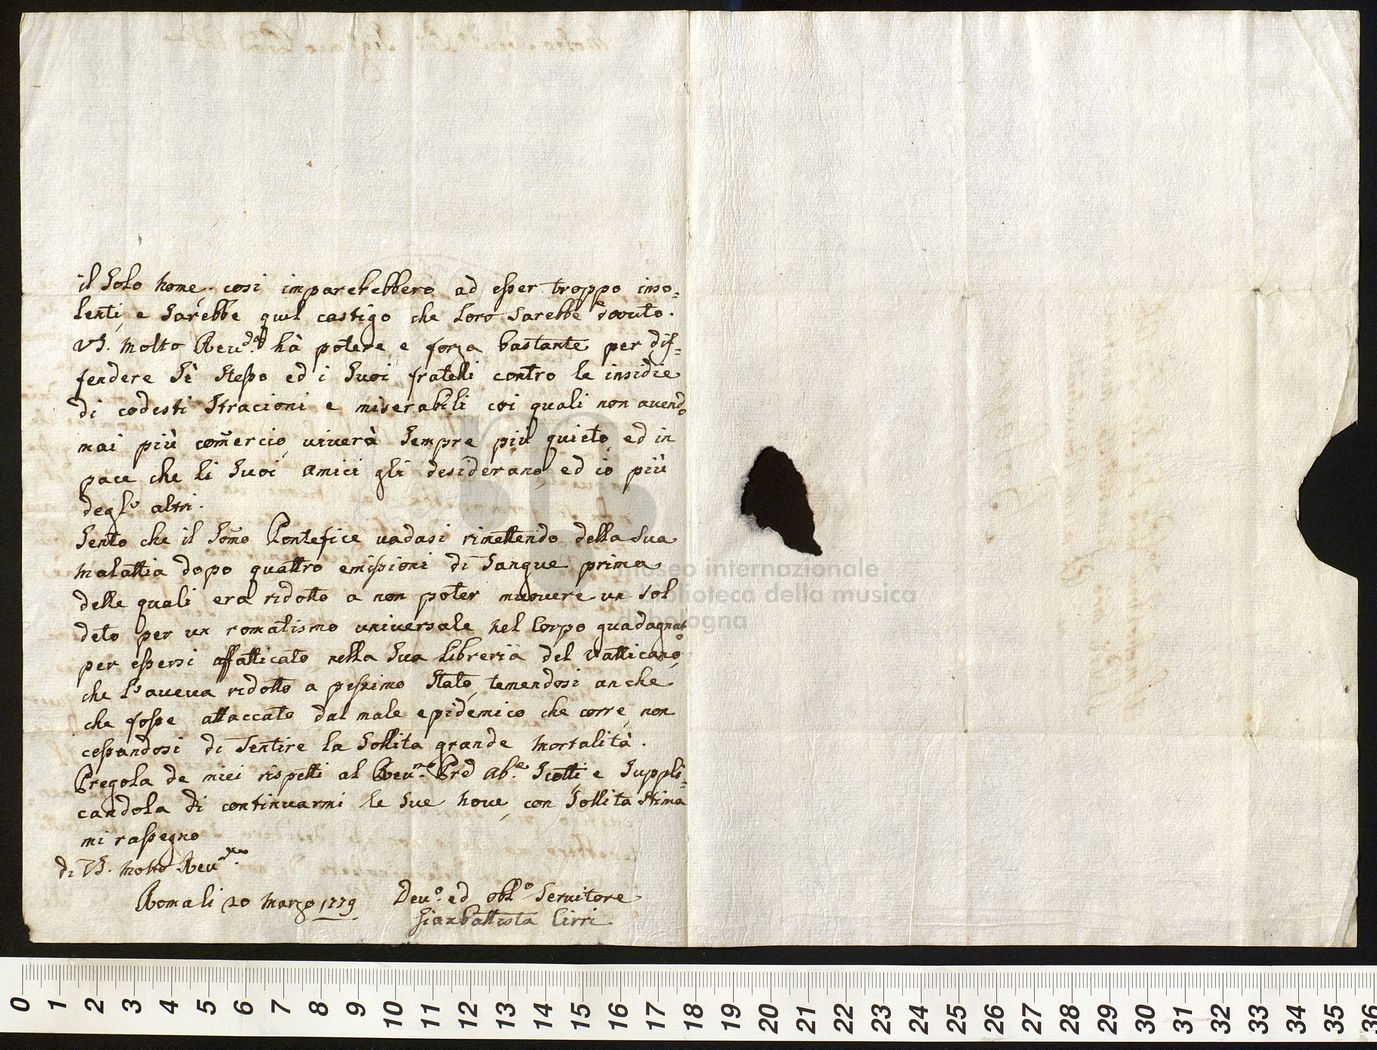 il Solo nome. così imparerebbero ad esser troppo inso=
lenti, e Sarebbe quel castigo che loro Sarebbe dovuto.
VS. Molto Reu.d hà potere, e forza bastante per dif=
fendere Sè Stesso ed i Suoi fratelli contro le insidie
di codesti Stracioni e miserabili coi quali non auendo
mai più com̃ercio, uiuerà Sempre più quieto, ed in
pace che li Suoi amici gli desiderano, ed io più
degl' altri.
Sento che il Som̃o Pontefice uadasi rimettendo della Sua
Malattia dopo quattro emissioni di Sangue prima
delle quali era ridotto a non poter muouere un Sol
deto per un romatismo uniuersale nel Corpo guadagnato
per essersi affatticato nella Sua libreria del Vatticano,
che l'aueua ridotto a pessimo Stato, temendosi anche
che fosse attaccato dal male epidemico che corre, non
cessandosi di Sentire la Sollita grande mortalità.
Pregola de miei rispetti al Reu.mo Prd Ab.e Scotti e Suppli=
candola di continuarmi le Sue noue, con Sollita Stima
mi rassegno
di VS. Molto Reu.
Roma li 20 Marzo 1779 Deu.o ed obl.o Seruitore
GianBattista Cirri
museo internazionale
biblioteca della musica
bologna
0 1 2 3 4 5 6 7 8 9 10 11 12 13 14 15 16 17 18 19 20 21 22 23 24 25 26 27 28 29 30 31 32 33 34 35 36